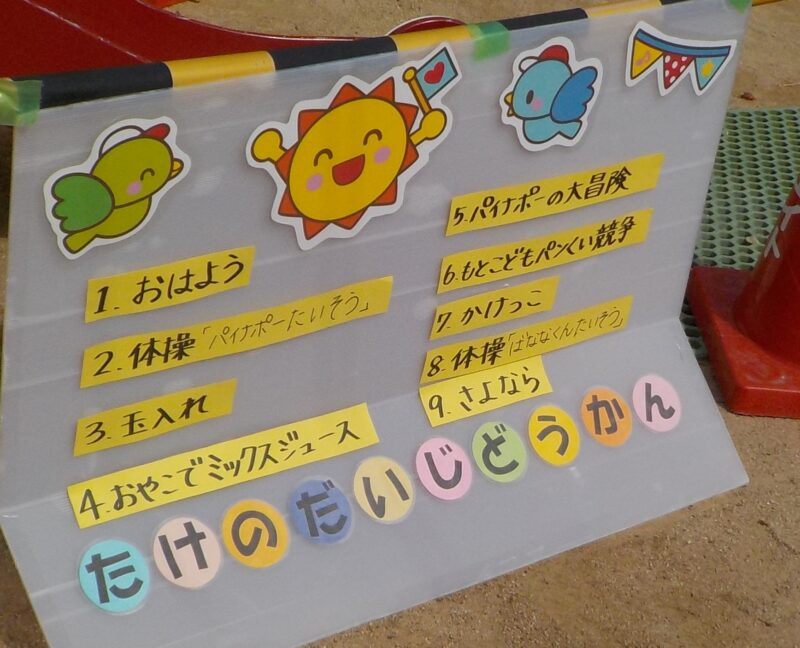 1. おはよう
2. 体操「パイナポーたいそう」
3. 玉入れ
4. おやこでミックスジュース
5. パイナポーの大冒険
6. もとこどもパンくい競争
7. かけっこ
8. 体操「ばななくんたいそう」
9. さよなら
たけのだいじどうかん